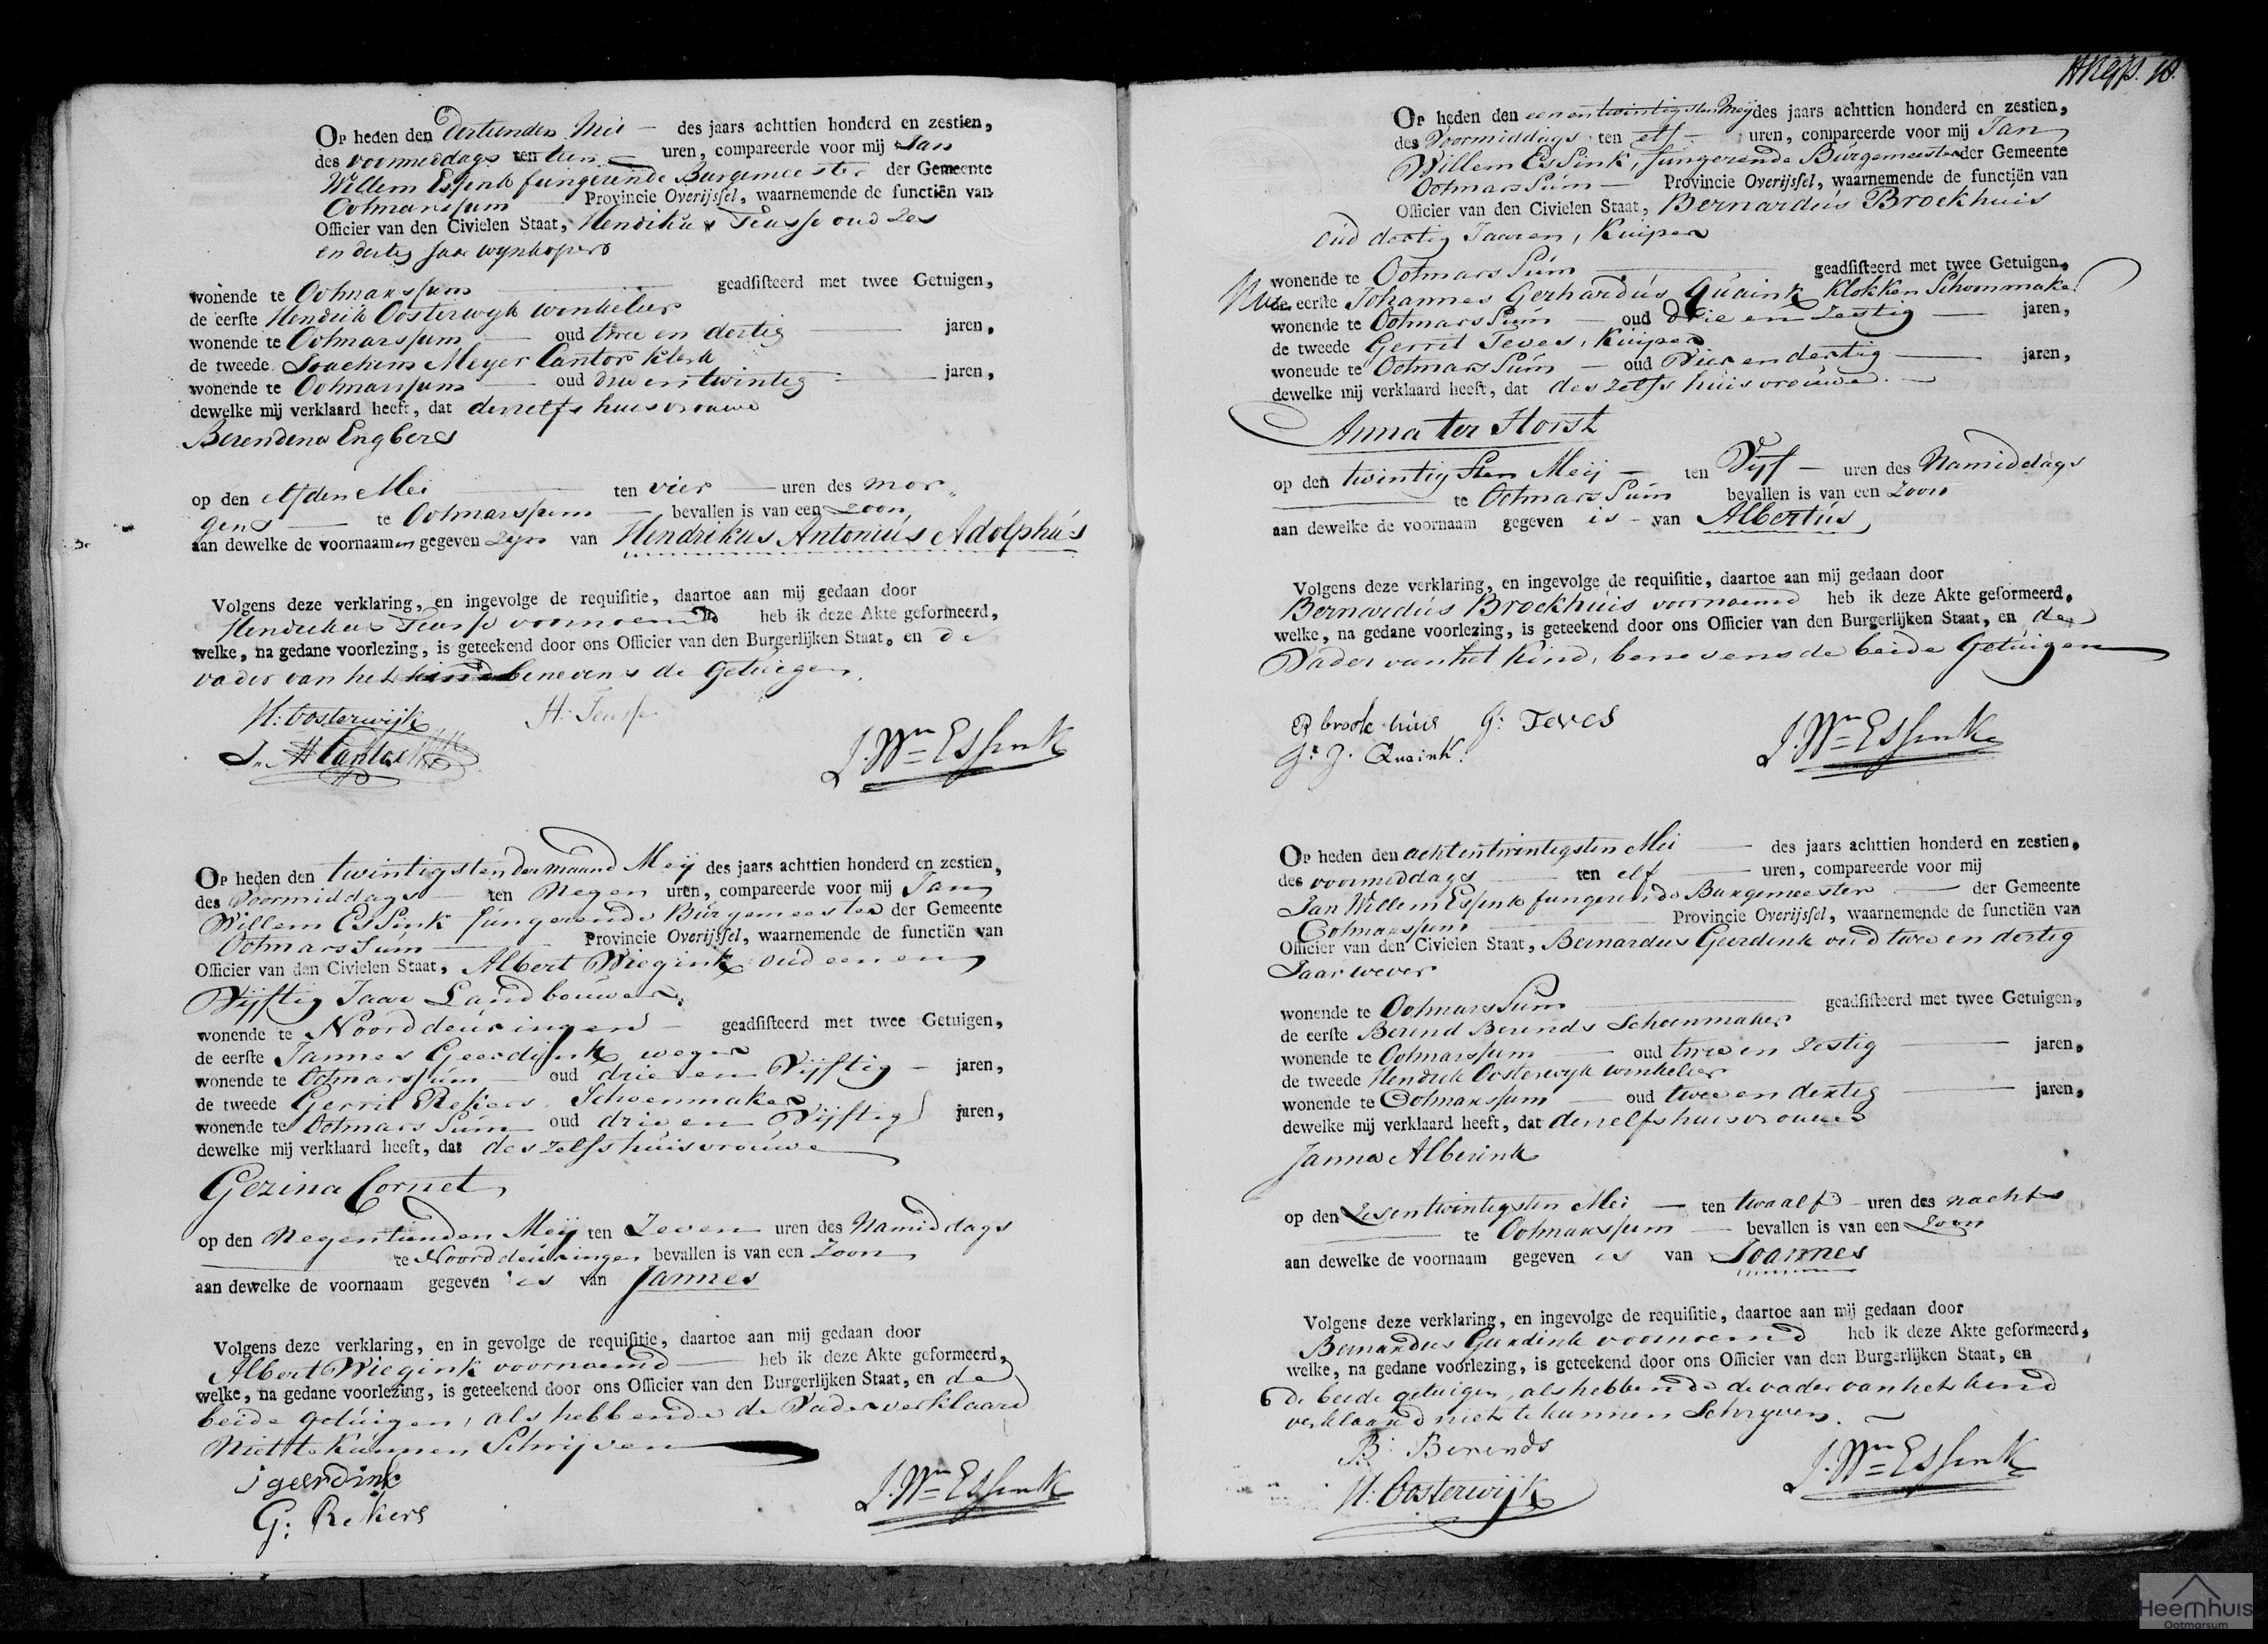 Op heden den dertienden Mei — des jaars achttien honderd en zestien,
des voormiddags ten tien — uren, compareerde voor mij Jan
Willem Essink fungerende Burgemeester der Gemeente
Ootmarssum Provincie Overijssel, waarnemende de functiën van
Officier van den Civielen Staat, Hendrikus oud zes
en dertig Jaar wynkoper
wonende te Ootmarssum — geadsisteerd met twee Getuigen,
de eerste Hendrik Oosterwyk winkelier
wonende te Ootmarssum — oud twee en dertig — jaren,
de tweede Joachem Meyer Cantor Klerk
wonende te Ootmarssum — oud drie en twintig — jaren,
dewelke mij verklaard heeft, dat deszelfs huisvrouwe
Berendena Engbers
op den elfden Mei — ten vier — uren des mor„
gens — te Ootmarssum — bevallen is van een zoon
aan dewelke de voornaamen gegeven zyn van Hendrikus Antonius Adolphus
Volgens deze verklaring, en ingevolge de requisitie, daartoe aan mij gedaan door
Hendrikus voornoemd heb ik deze Akte geformeerd,
welke, na gedane voorlezing, is geteekend door ons Officier van den Burgerlijken Staat, en de
vader van het kind benevens de Getuigen.
H: Oosterwijk H:
J. Wm Essink
Op heden den twintigsten der maand Meij des jaars achttien honderd en zestien,
des Voormiddags — ten Negen uren, compareerde voor mij Jan
Willem Essink fungerende Burgemeester der Gemeente
Ootmarssum — Provincie Overijssel, waarnemende de functiën van
Officier van den Civielen Staat, Albert Wiegink oud een en
Vijftig Jaar Landbouwer,
wonende te Noorddeurningen — geadsisteerd met twee Getuigen,
de eerste Jannes Geerdink wever
wonende te Ootmarssum — oud drie en Vijftig — jaren,
de tweede Gerrit Rekers Schoenmaker
wonende te Ootmarssum oud drie en Vijftig jaren,
dewelke mij verklaard heeft, dat deszelfs huisvrouwe
Gezina Cornet
op den Negentienden Meij ten Zeven uren des Namiddags
te Noorddeurningen bevallen is van een Zoon
aan dewelke de voornaam gegeven is van Jannes
Volgens deze verklaring, en in gevolge de requisitie, daartoe aan mij gedaan door
Albert Wiegink voornoemd — heb ik deze Akte geformeerd,
welke, na gedane voorlezing, is geteekend door ons Officier van den Burgerlijken Staat, en de
beide getuigen, als hebbende de Vader verklaard
Niet te kunnen Schrijven
j geerdink
G: Rekers
J. Wm Essink
Op heden den een en twintigsten Meij des jaars achttien honderd en zestien,
des Voormiddags ten elf — uren, compareerde voor mij Jan
Willem Essink, fungerende Burgemeester der Gemeente
Ootmarssum — Provincie Overijssel, waarnemende de functiën van
Officier van den Civielen Staat, Bernardus Broekhuis
oud dertig Jaaren, Kuiper
wonende te Ootmarssum — geadsisteerd met twee Getuigen,
de eerste Johannes Gerhardus Quaink Klokken Schoenmaker
wonende te Ootmarssum — oud drie en zestig — jaren,
de tweede Gerrit Teves, Kuiper
wonende te Ootmarssum — oud Vier en dertig — jaren,
dewelke mij verklaard heeft, dat deszelfs huisvrouwe —
Anna ter Horst
op den twintigsten Meij — ten Vyf — uren des Namiddags
— te Ootmarssum bevallen is van een Zoon
aan dewelke de voornaam gegeven is — van Albertus
Volgens deze verklaring, en ingevolge de requisitie, daartoe aan mij gedaan door
Bernardus Broekhuis voornoemd heb ik deze Akte geformeerd,
welke, na gedane voorlezing, is geteekend door ons Officier van den Burgerlijken Staat, en de
Vader van het Kind, benevens de beide Getuigen
B brook huis G: Teves
J. Quaink.
J. Wm Essink
Op heden den achtentwintigsten Mei — des jaars achttien honderd en zestien,
des voormiddags — ten elf — uren, compareerde voor mij
Jan Willem Essink fungerende Burgemeester — der Gemeente
Ootmarssum — Provincie Overijssel, waarnemende de functiën van
Officier van den Civielen Staat, Bernardus Geerdink oud twee en dertig
Jaar wever
wonende te Ootmarssum — geadsisteerd met twee Getuigen,
de eerste Berend Berends Schoenmaker
wonende te Ootmarssum — oud twee en zestig — jaren,
de tweede Hendrik Oosterwyk winkelier
wonende te Ootmarssum — oud twee en dertig — jaren,
dewelke mij verklaard heeft, dat deszelfs huisvrouwe
Janna Alberink
op den Zesentwintigsten Mei — ten twaalf — uren des nachts
— te Ootmarssum — bevallen is van een Zoon
aan dewelke de voornaam gegeven is van Joannes
Volgens deze verklaring, en ingevolge de requisitie, daartoe aan mij gedaan door
Bernardus Geerdink voornoemd heb ik deze Akte geformeerd,
welke, na gedane voorlezing, is geteekend door ons Officier van den Burgerlijken Staat, en
de beide getuigen, als hebbende de vader van het kind
verklaard niet te kunnen Schryven. —
B: Berends
H: Oosterwijk
J. Wm Essink
Heemhuis
Ootmarsum